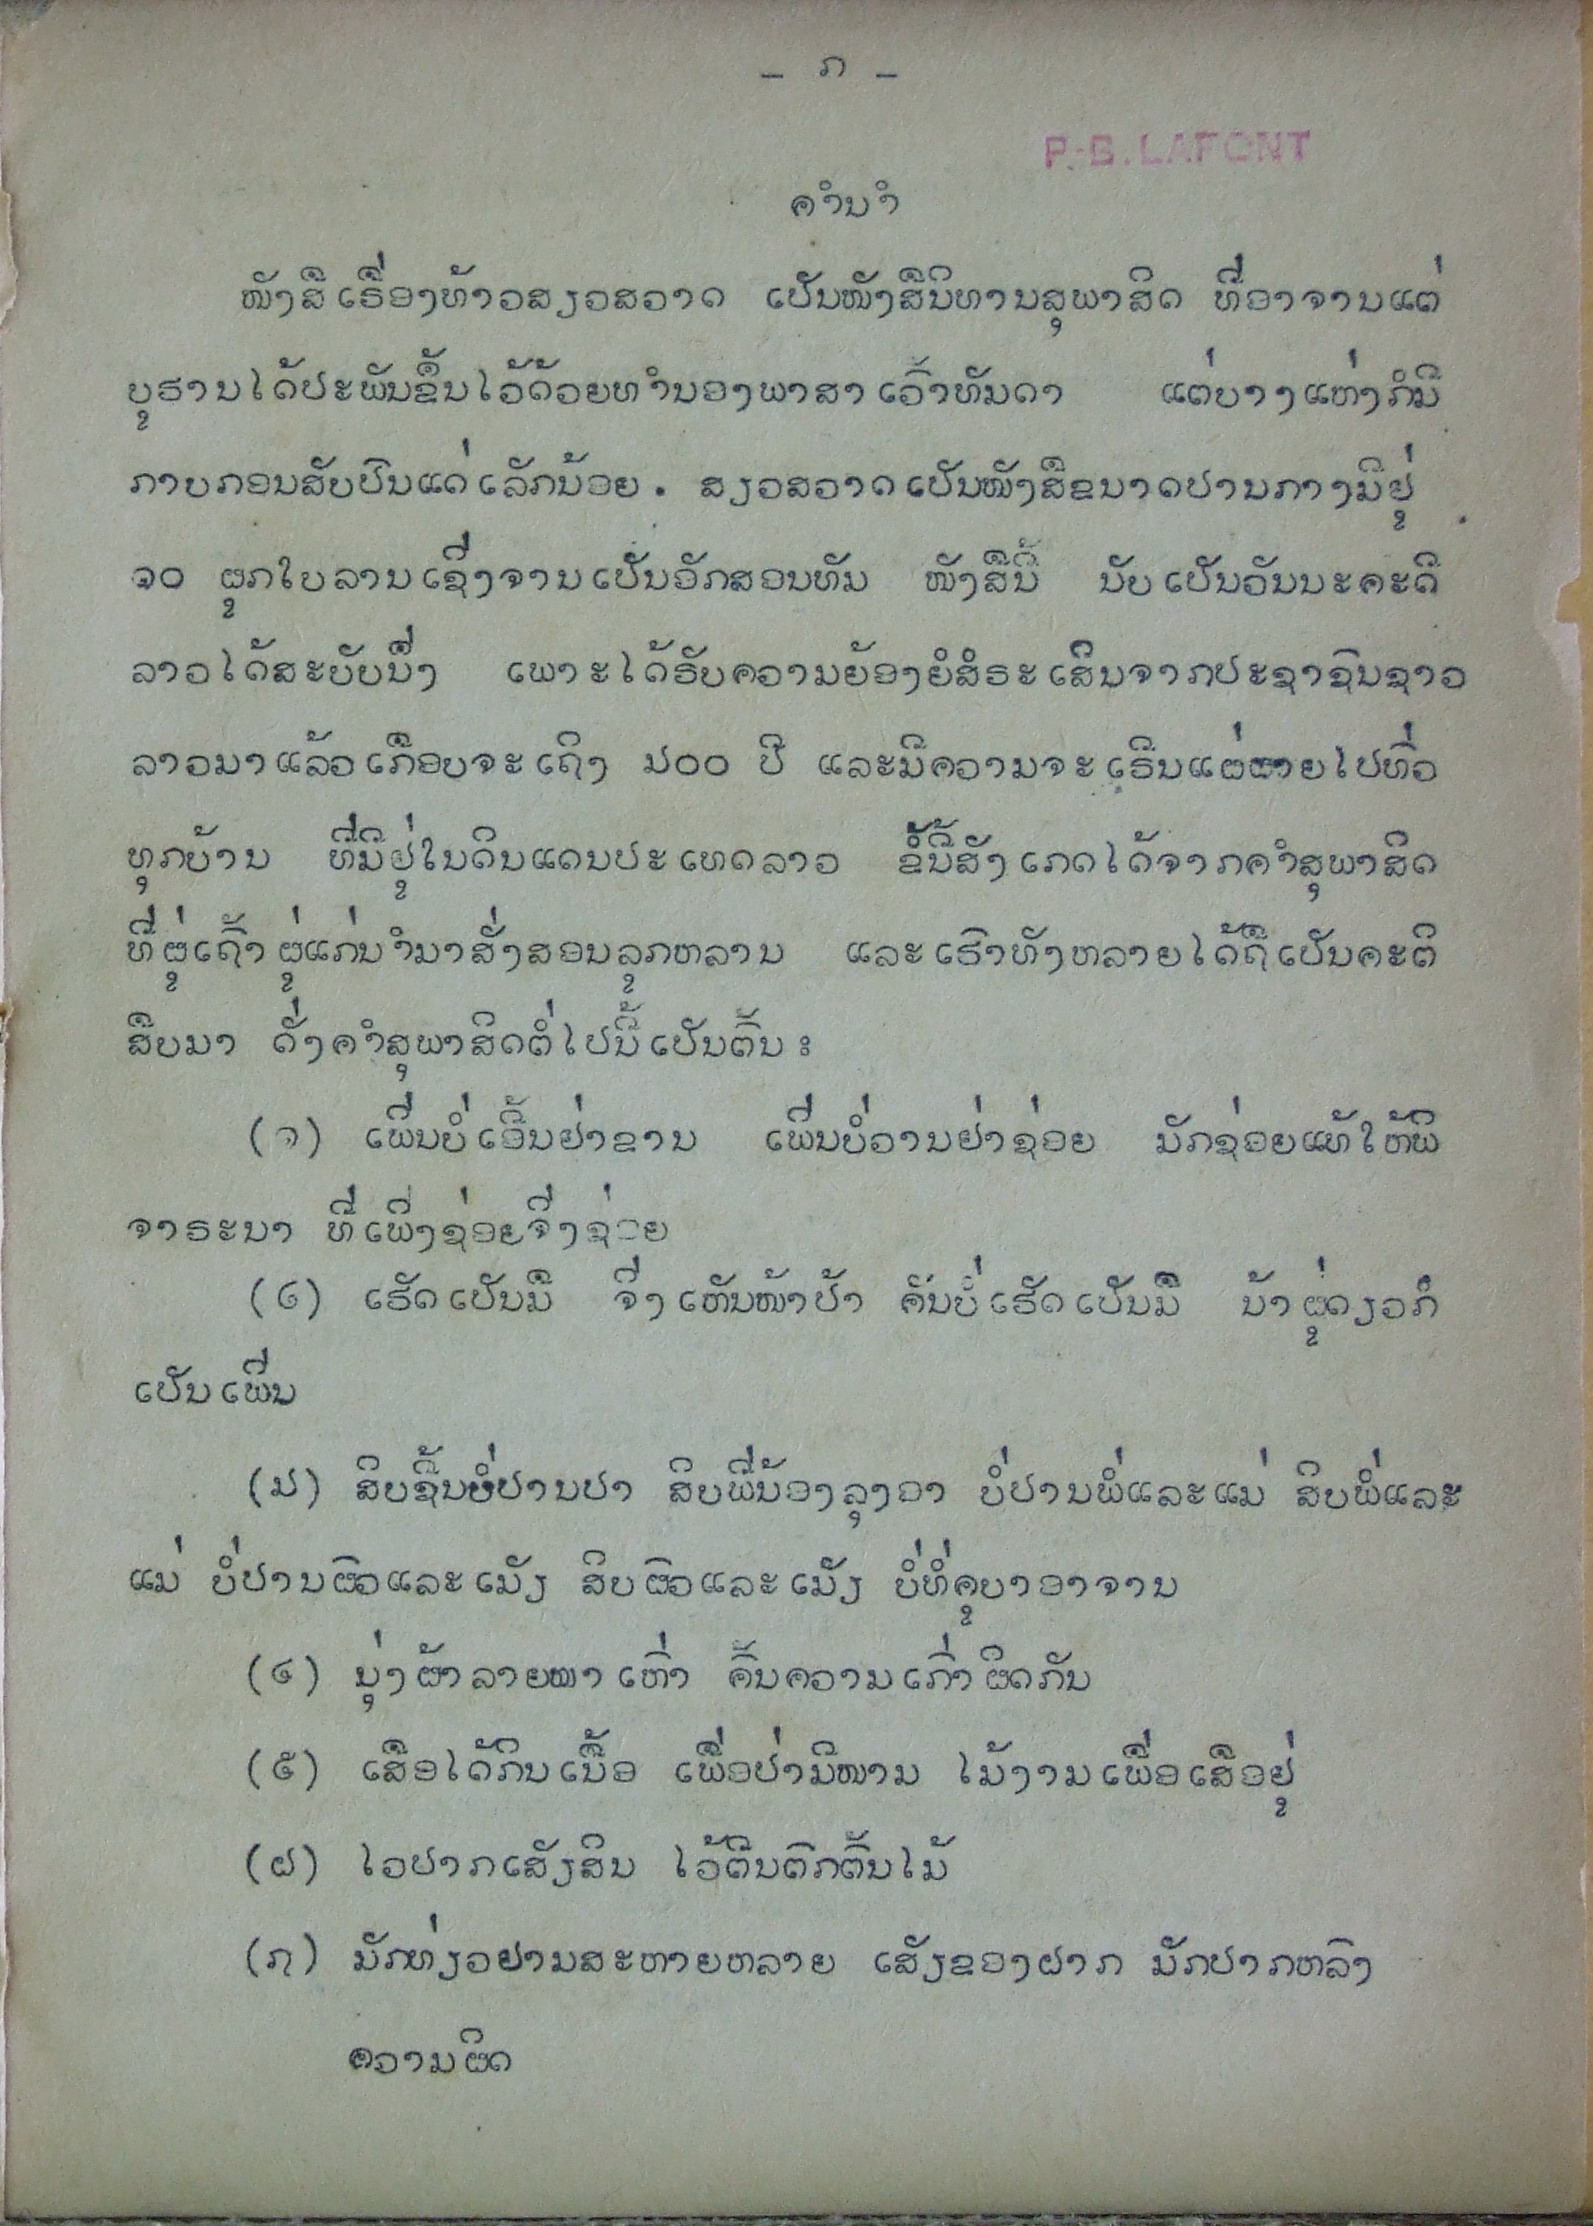 - ກ -
P-B.LAFONT
ຄຳນຳ
ໜັງສືເຣື່ອງທ້າວສຽວສວາດ ເປັນໜັງສືນິທານສຸພາສິດ ທີ່ອາຈານແຕ່
ບູຮານໄດ້ປະພັນຂຶ້ນໄວ້ດ້ວຍທຳນອງພາສາເວົ້າທັມດາ ແຕ່ບາງແຫ່ງກໍມີ
ກາບກອນສັບປົນແດ່ເລັກນ້ອຍ. ສຽວສວາດເປັນໜັງສືຂນາດປານກາງມີຢູ່
໑໐ ຜູກໃບລານເຊິ່ງຈານເປັນອັກສອນທັມ ໜັງສືນີ້ ນັບເປັນວັນນະຄະດີ
ລາວໄດ້ສະບັບນຶ່ງ ເພາະໄດ້ຮັບຄວາມຍ້ອງຍໍສໍຣະເສີນຈາກປະຊາຊົນຊາວ
ລາວມາແລ້ວເກືອບຈະເຖິງ ໓໐໐ ປີ ແລະມີຄວາມຈະເຣີນແຜ່ຜາຍໄປທົ່ວ
ທຸກບ້ານ ທີ່ມີຢູ່ໃນດິນແດນປະເທດລາວ ຂໍ້ນີ້ສັງເກດໄດ້ຈາກຄຳສຸພາສິດ
ທີ່ຜູ່ເຖົ້າຜູ່ແກ່ນຳມາສັ່ງສອນລູກຫລານ ແລະເຮົາທັງຫລາຍໄດ້ຖືເປັນຄະຕິ
ສືບມາ ດັ່ງຄຳສຸພາສິດຕໍ່ໄປນີ້ເປັນຕົ້ນ :
(໑) ເພິ່ນບໍ່ເອີ້ນຢ່າຂານ ເພິ່ນບໍ່ວານຢ່າຊ່ອຍ ມັກຊ່ອຍແທ້ໃຫ້ພິ
ຈາຣະນາ ທີ່ເພິ່ງຊ່ອຍຈຶ່ງຊ່ອຍ
(໒) ເຮັດເປັນມື ຈຶ່ງເຫັນໜ້າປ້າ ຄັນບໍ່ເຮັດເປັນມື ນ້າຜູ່ດຽວກໍ
ເປັນເພິ່ນ
(໓) ສິບຊີ້ນບໍ່ປານປາ ສິບພີ່ນ້ອງລຸງອາ ບໍ່ປານພໍ່ແລະແມ່ ສິບພໍ່ແລະ
ແມ່ ບໍ່ປານຜົວແລະເມັຽ ສິບຜົວແລະເມັຽ ບໍ່ທໍ່ຄູບາອາຈານ
(໔) ນຸ່ງຜ້າລາຍໝາເຫົ່າ ຄົ້ນຄວາມເກົ່າຜິດກັນ
(໕) ເສືອໄດ້ກິນເນື້ອ ເພື່ອປ່າມີໜາມ ໄມ້ງາມເພື່ອເສືອຢູ່
(໖) ໄວປາກເສັຽສິນ ໄວ້ຕີນຕົກຕົ້ນໄມ້
(໗) ມັກທ່ຽວຢາມສະຫາຍຫລາຍ ເສັຽຂອງຝາກ ມັກປາກຫລົງ
ຄວາມຜິດ